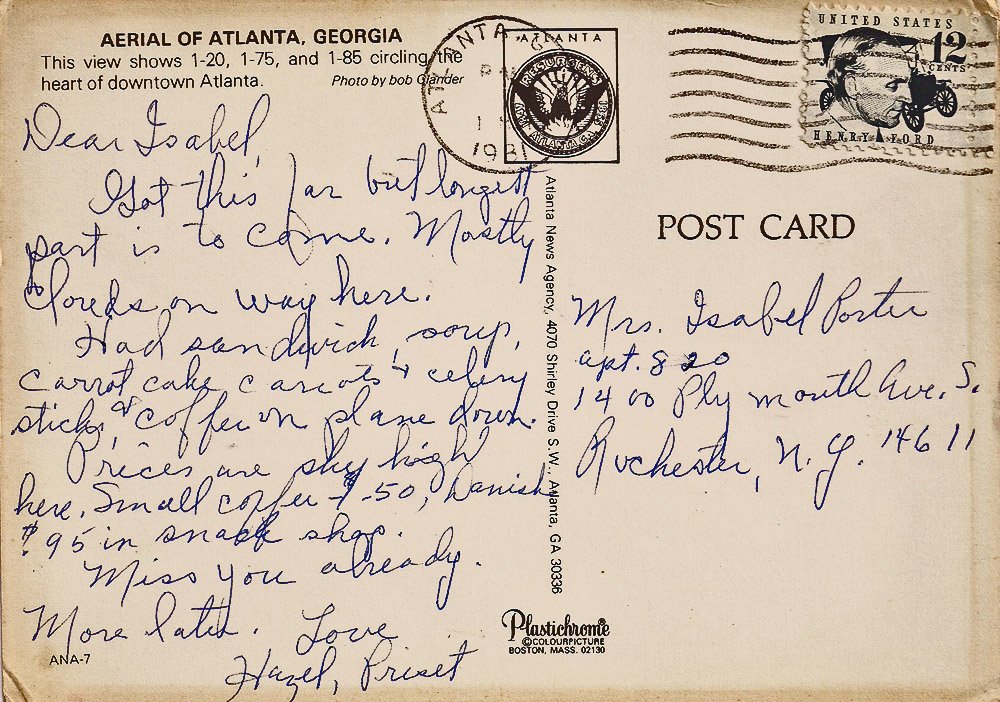 AERIAL OF ATLANTA, GEORGIA
This view shows 1-20, 1-75, and 1-85 circling the
heart of downtown Atlanta.
Photo by bob Glander
Dear Isabel,
Got this far but longest
part is to come. Mostly
clouds on way here.
Had sandwich, soup,
carrot cake carrots + celery
sticks, & coffee on plane down.
Prices are sky high
here. Small coffee - $.50, Danish
$.95 in snack shop.
Miss you already.
More later. Love
Hazel,
ANA-7
ATLANTA GA
PM
1981
ATLANTA
RESURGENS
ATLANTA, GA.
UNITED STATES
12
CENTS
HENRY FORD
Atlanta News Agency, 4070 Shirley Drive S.W., Atlanta, GA 30336
POST CARD
Mrs. Isabel Porter
apt. 820
1400 Plymouth Ave. S.
Rochester, N.Y. 14611
Plastichrome
©COLOURPICTURE
BOSTON, MASS. 02130